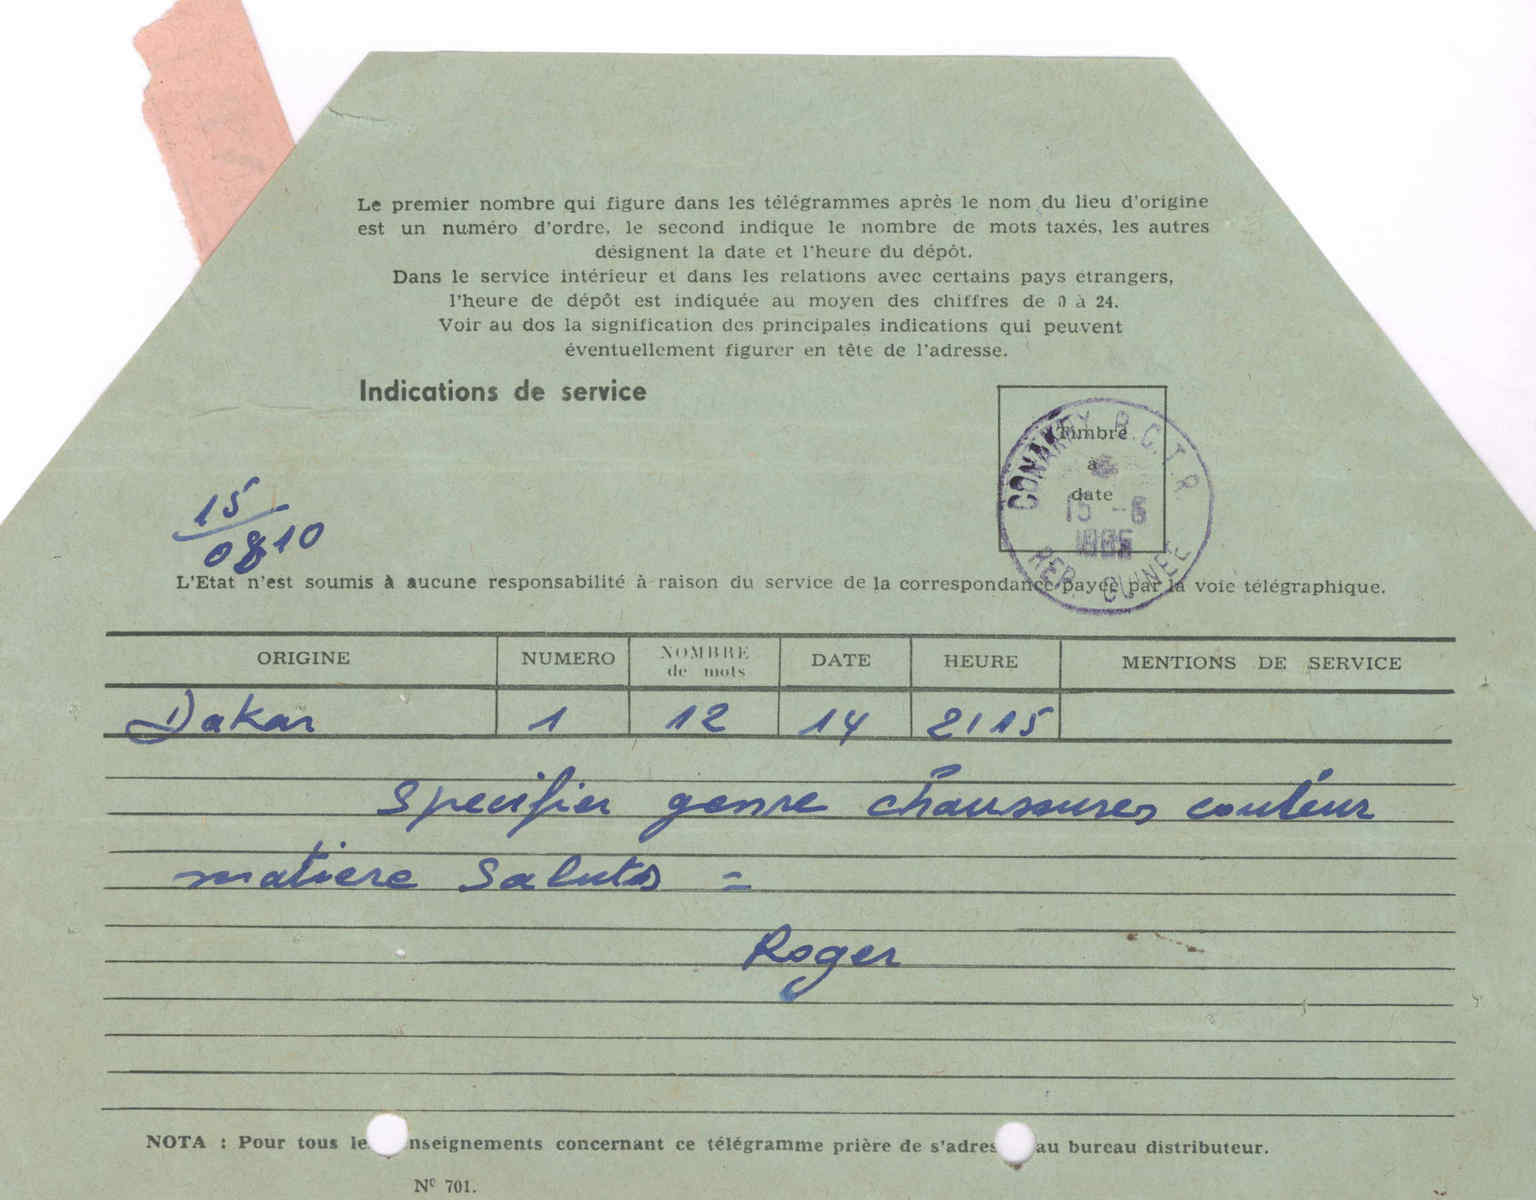 Le premier nombre qui figure dans les télégrammes après le nom du lieu d'origine
est un numéro d'ordre, le second indique le nombre de mots taxés, les autres
désignent la date et l'heure du dépôt.
Dans le service intérieur et dans les relations avec certains pays étrangers,
l'heure de dépôt est indiquée au moyen des chiffres de 0 à 24.
Voir au dos la signification des principales indications qui peuvent
éventuellement figurer en tête de l'adresse.
Indications de service
Timbre
à
date
CONAKRY R.C.T.R.
15 -6
REP. GUINEE
15
0810
L'Etat n'est soumis à aucune responsabilité à raison du service de la correspondance payée par la voie télégraphique.
ORIGINE NUMERO NOMBRE de mots DATE HEURE MENTIONS DE SERVICE
Dakar 1 12 14 2115
Specifier genre chaussures couleur
matiere Saluts =
Roger
NOTA : Pour tous le nseignements concernant ce télégramme prière de s'adres au bureau distributeur.
N° 701.